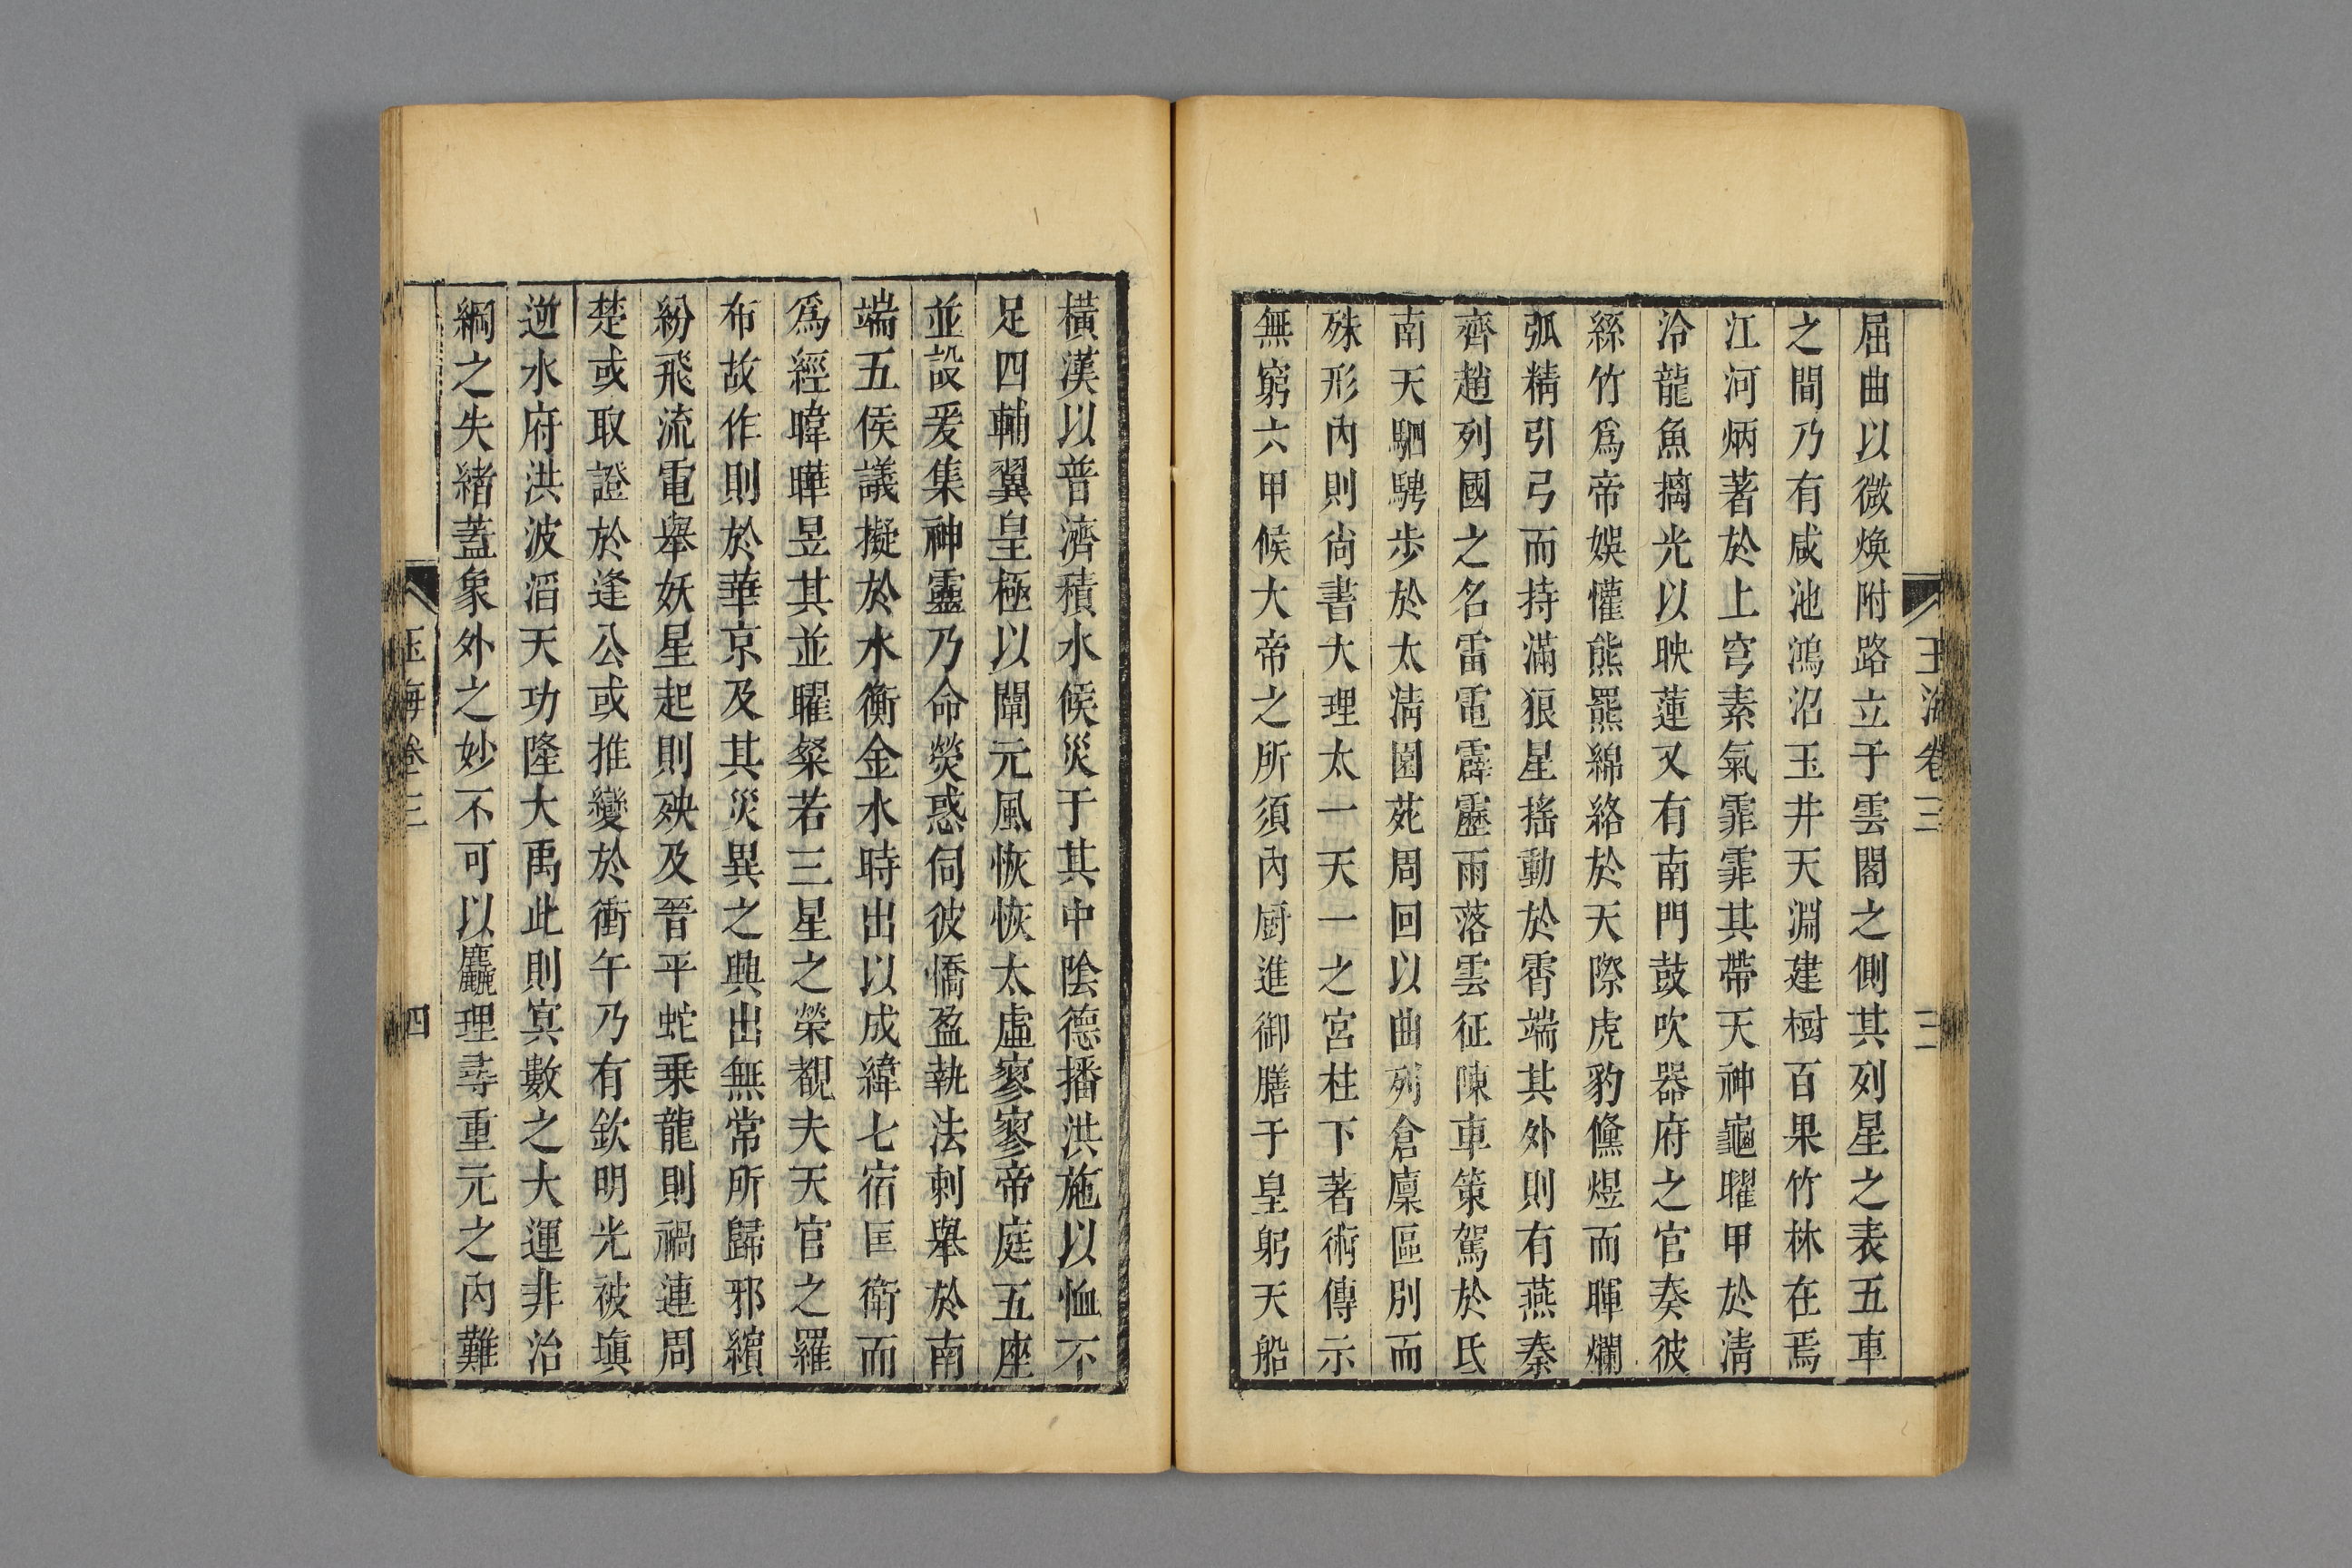 玉海卷三 三
屈曲以微煥附路立于雲閣之側其列星之表五車
之間乃有咸池鴻沼玉井天淵建樹百果竹林在焉
江河炳著於上穹素氣霏霏其帶天神龜曜甲於清
泠龍魚摛光以映蓮又有南門鼓吹器府之官奏彼
絲竹爲帝娛懽熊羆綿絡於天際虎豹儵煜而暉爛
弧精引弓而持滿狼星搖動於霄端其外則有燕秦
齊趙列國之名雷電霹靂雨落雲征陳車策駕於氐
南天駟騁步於太清園苑周回以曲列倉廩區別而
殊形內則尙書大理太一天一之宮柱下著術傳示
無窮六甲候大帝之所須內厨進御膳于皇躬天船
橫漢以普濟積水候災于其中陰德播洪施以恤不
足四輔翼皇極以闡元風恢恢太虛寥寥帝庭五座
並設爰集神靈乃命熒惑伺彼憍盈執法刺舉於南
端五侯議擬於水衡金水時出以成緯七宿匡衛而
爲經暐曄昱其並曜粲若三星之榮覩夫天官之羅
布故作則於華京及其災異之興出無常所歸邪繽
紛飛流電舉妖星起則殃及晉平蛇乗龍則禍連周
楚或取證於逢公或推變於衝午乃有欽明光被塡
逆水府洪波滔天功隆大禹此則冥數之大運非治
綱之失緒蓋象外之妙不可以麤理尋重元之內難
玉海卷三 四